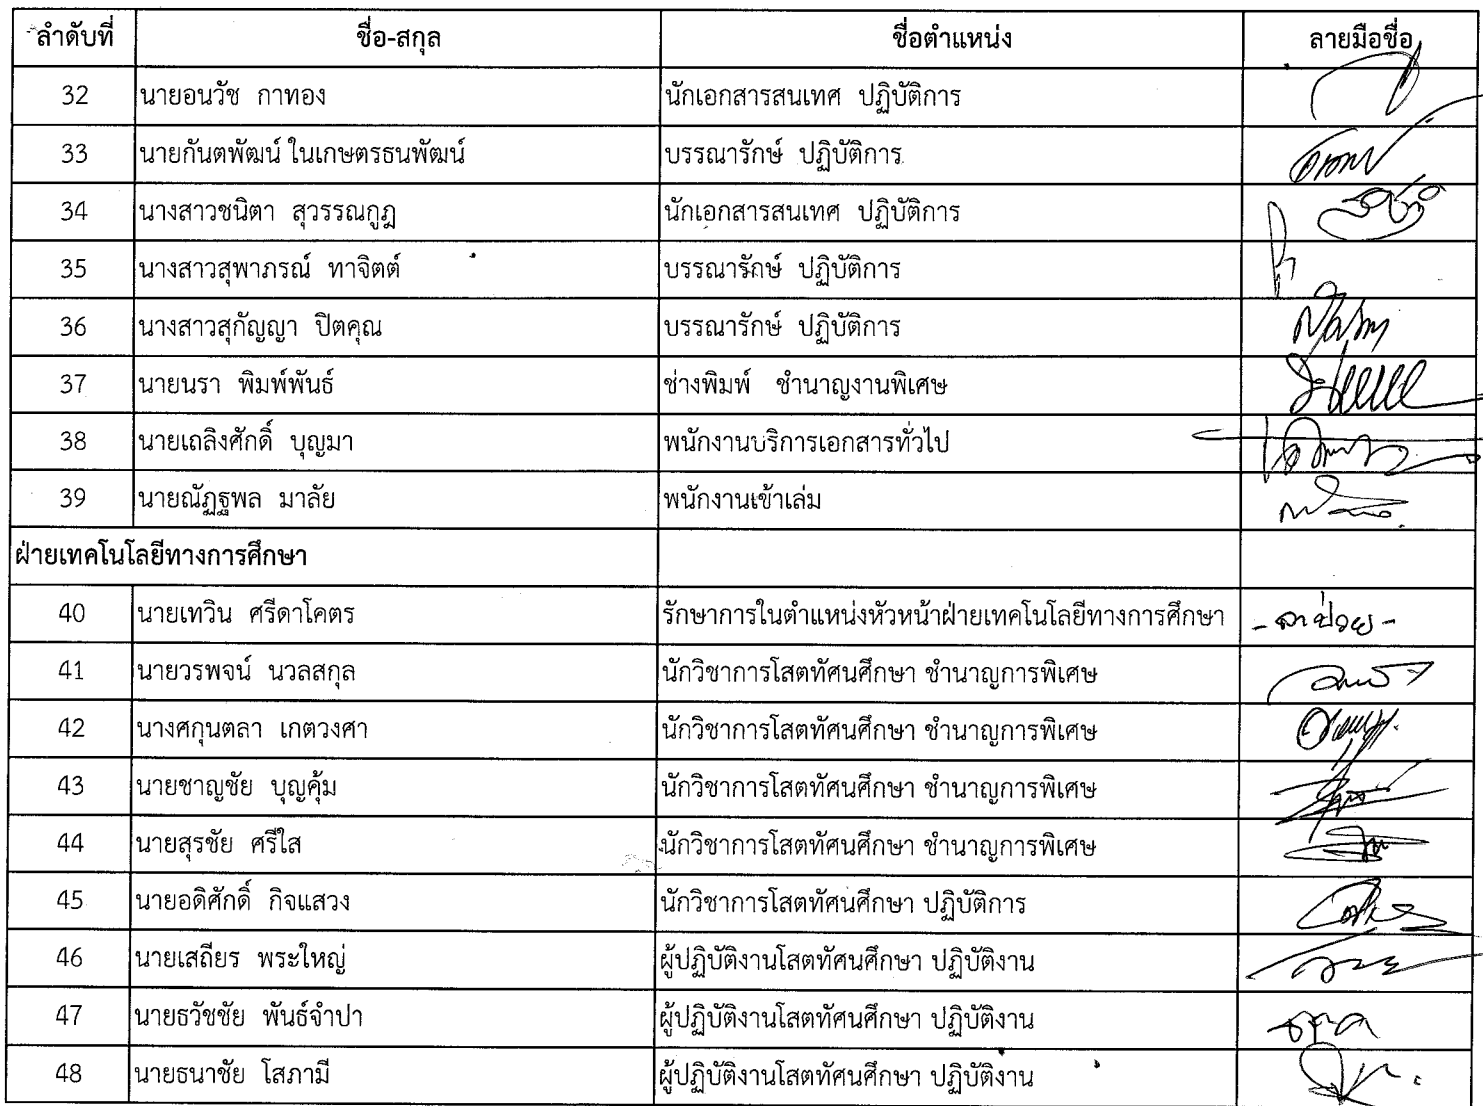 ลำดับที่ ชื่อ-สกุล ชื่อตำแหน่ง ลายมือชื่อ
32 นายอนวัช กาทอง นักเอกสารสนเทศ ปฏิบัติการ
33 นายกันตพัฒน์ ในเกษตรธนพัฒน์ บรรณารักษ์ ปฏิบัติการ
34 นางสาวชนิตา สุวรรณกูฏ นักเอกสารสนเทศ ปฏิบัติการ
35 นางสาวสุพาภรณ์ ทาจิตต์ บรรณารักษ์ ปฏิบัติการ
36 นางสาวสุกัญญา ปิตคุณ บรรณารักษ์ ปฏิบัติการ
37 นายนรา พิมพ์พันธ์ ช่างพิมพ์ ชำนาญงานพิเศษ
38 นายเถลิงศักดิ์ บุญมา พนักงานบริการเอกสารทั่วไป
39 นายณัฏฐพล มาลัย พนักงานเข้าเล่ม
ฝ่ายเทคโนโลยีทางการศึกษา
40 นายเทวิน ศรีดาโคตร รักษาการในตำแหน่งหัวหน้าฝ่ายเทคโนโลยีทางการศึกษา - ลาป่วย -
41 นายวรพจน์ นวลสกุล นักวิชาการโสตทัศนศึกษา ชำนาญการพิเศษ
42 นางศกุนตลา เกตวงศา นักวิชาการโสตทัศนศึกษา ชำนาญการพิเศษ
43 นายชาญชัย บุญคุ้ม นักวิชาการโสตทัศนศึกษา ชำนาญการพิเศษ
44 นายสุรชัย ศรีใส นักวิชาการโสตทัศนศึกษา ชำนาญการพิเศษ
45 นายอดิศักดิ์ กิจแสวง นักวิชาการโสตทัศนศึกษา ปฏิบัติการ
46 นายเสถียร พระใหญ่ ผู้ปฏิบัติงานโสตทัศนศึกษา ปฏิบัติงาน
47 นายธวัชชัย พันธ์จำปา ผู้ปฏิบัติงานโสตทัศนศึกษา ปฏิบัติงาน
48 นายธนาชัย โสภามี ผู้ปฏิบัติงานโสตทัศนศึกษา ปฏิบัติงาน